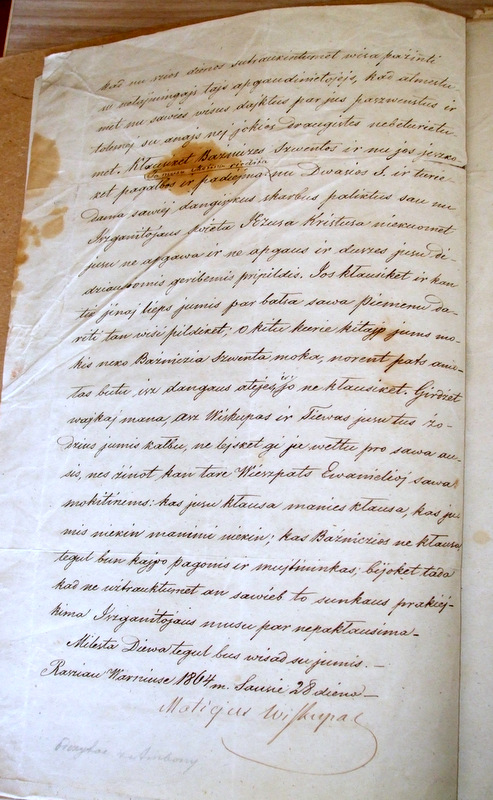 kad nu szios dienos sutrauxtumet wisa pażinti
su netejsingajs tajs apgaudinetojejs, kad atmestu
met nu sawes wisus dajktus par jus parzwenstus ir
tolimej su anajs nej jokios draugistes nebeturetu
met. Kłausiket Bażniczes Szwentos ir nu jos jeszko
ket pagałbos ir padiejima nu Dwasios S. ir turie
dama sawiej dangiszkus skarbus paliktus sau nu
Iszganitojaus swieta Jezusa Kristusa niekuomet
jusu ne apgawa ir ne apgaus ir duszes jusu di-
dziaupromis geribemis pripildis. Jos kłausiket ir kan
tiej jinaj lieps jumis par balsa sawa piemenu da-
riti tan wisi pildiket; o kitu kurie kitajp jums mo-
kis neko Bażniczia Szwenta moka, norent pats anio-
łas butu isz dangaus atejęs, jo ne kłausiket. Girdżet
wajkaj mana, asz Wiskupas ir Tiewas jusu tus żo-
dzius jumis kałbu, ne lejsket gi ju wełtu pro sawa au-
sis, nes żinot kan tare Wieszpats Ewanielioj sawa
mokitiniems: kas jusu kłausa manies kłausa, kas ju-
mis niekin mannii niekin; kas Bażniczios ne kłausa,
tegul bun kajpo pagonis ir mujtininkas; bijoket tada
kad ne użtrauktumet an sawieb to sunkaus prakiej-
kima Iszganitojaus musu par nepakłausima–
Milesta Diewa tegul bus wisad su jumis. –
Rasziau Warniuse 1864 m. Sausi 28 diena –
Motiejus Wiskupas